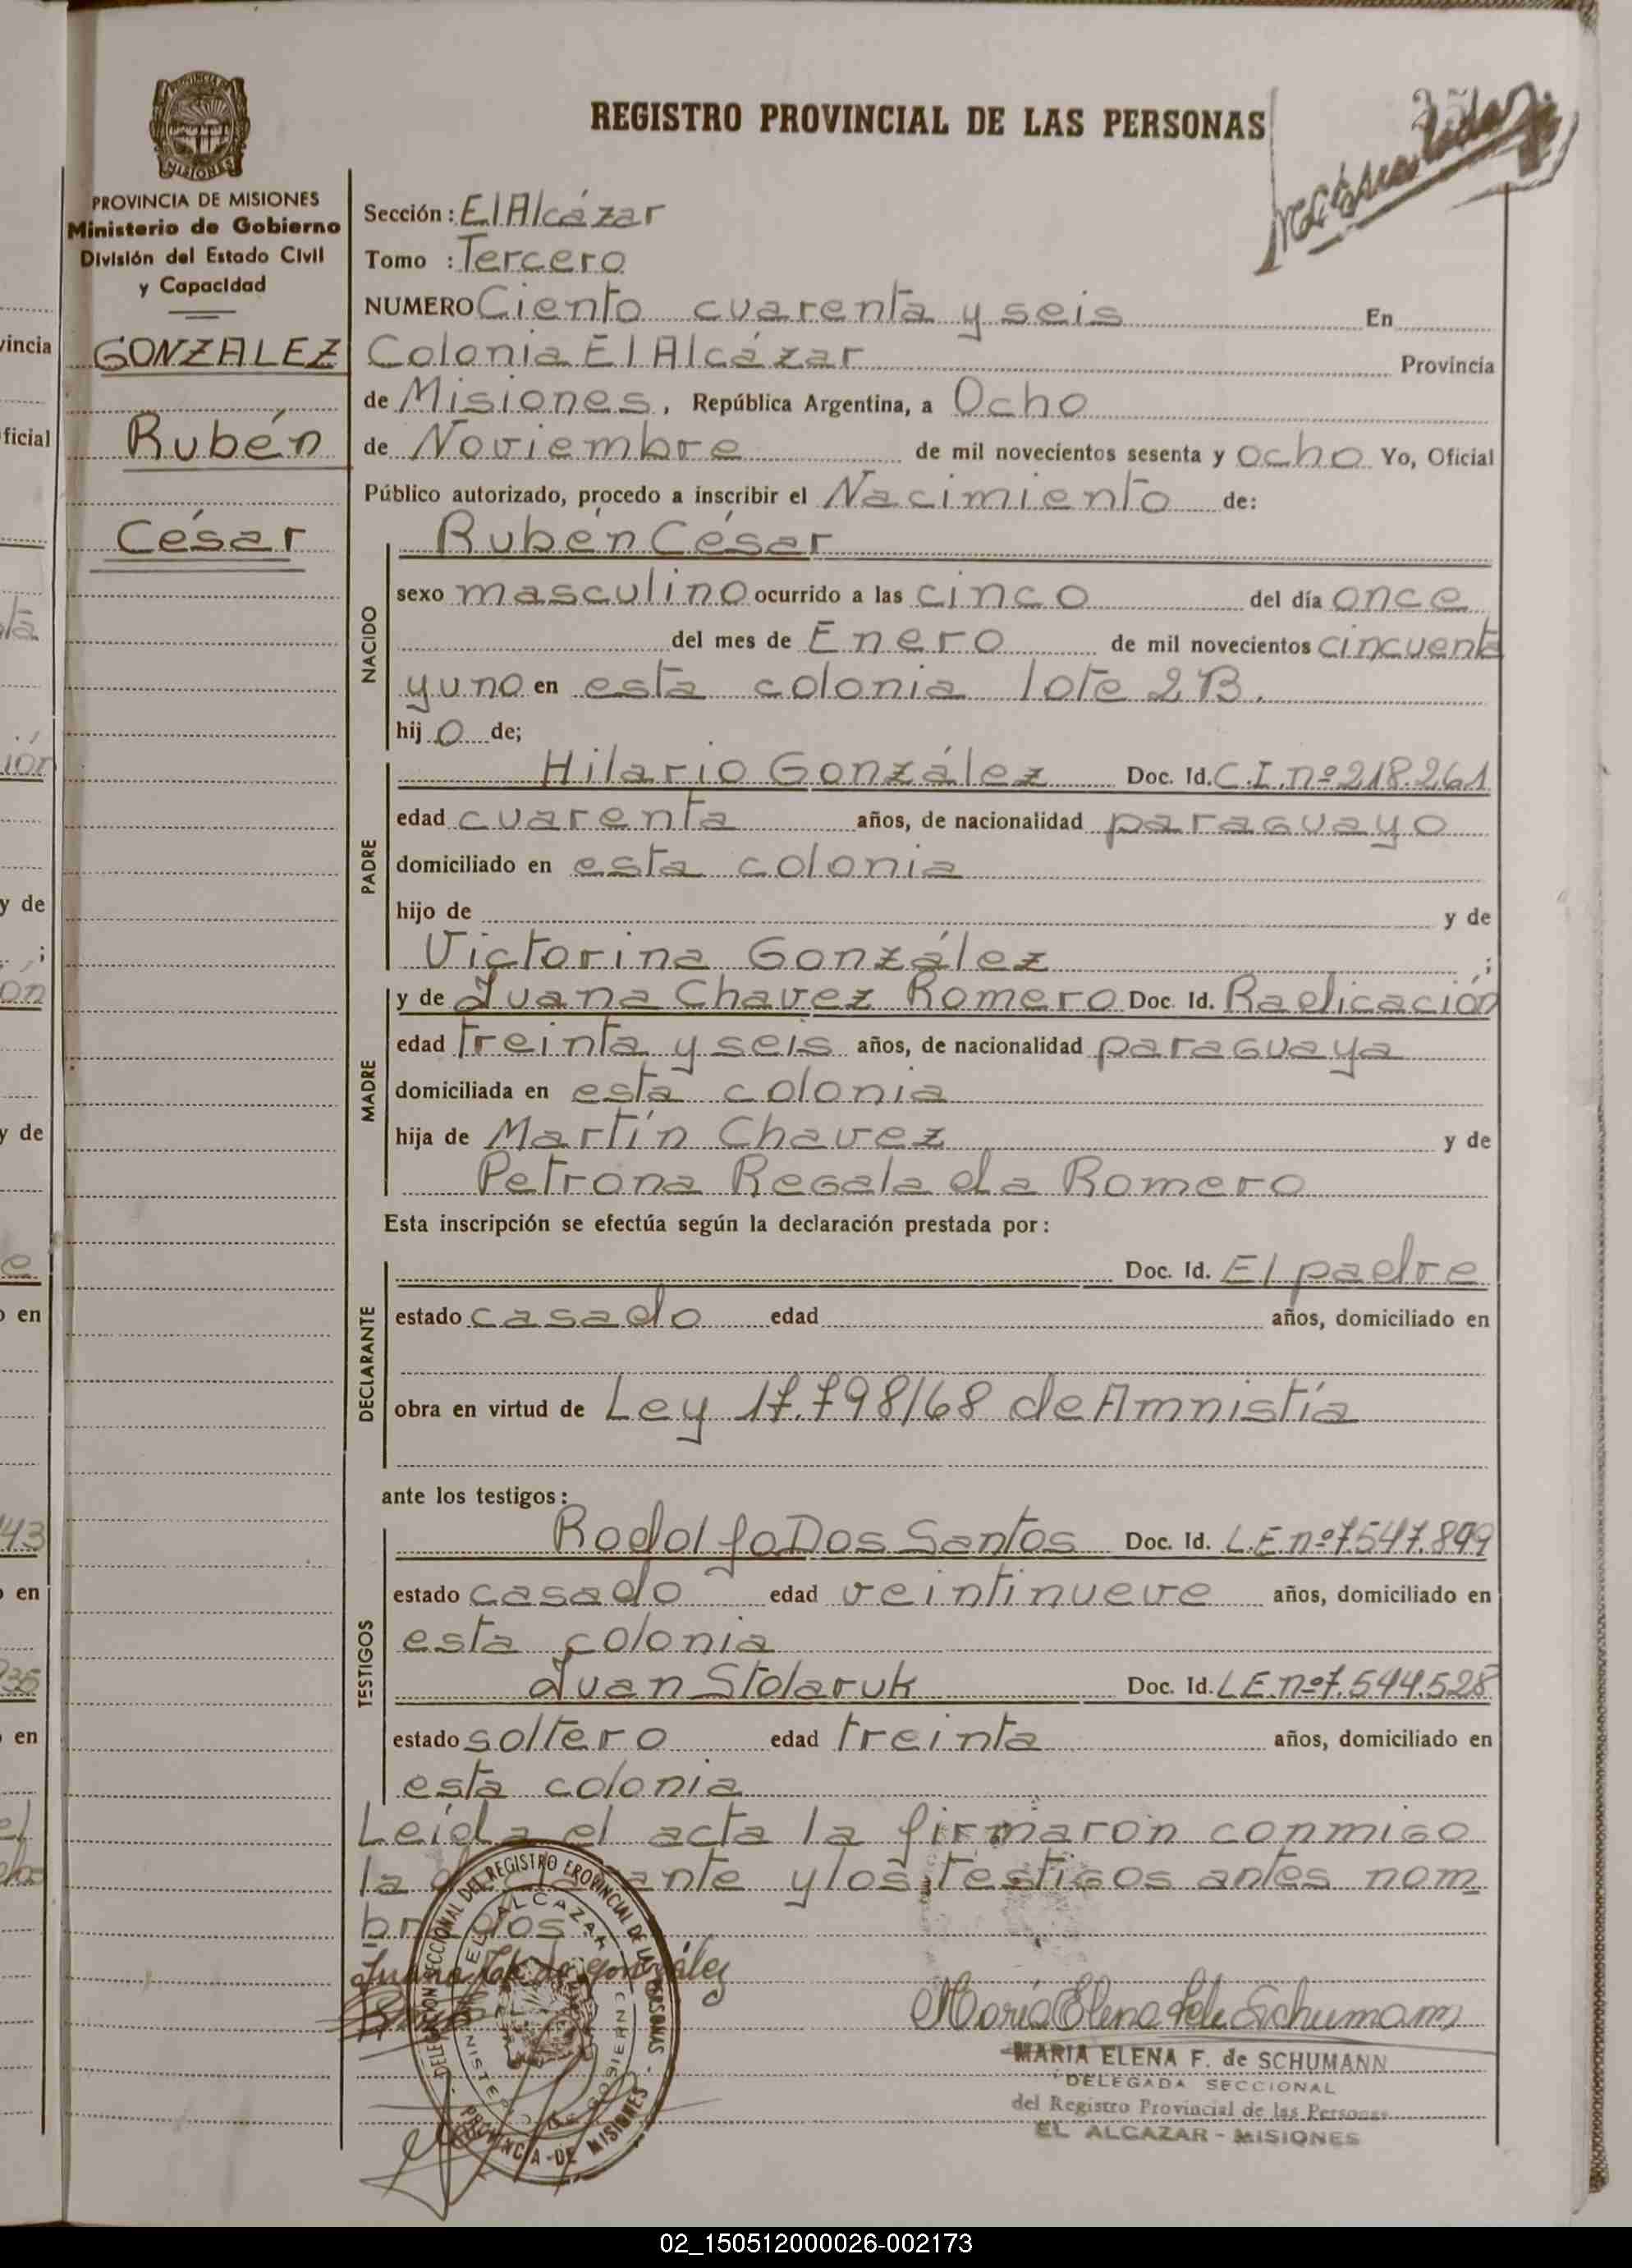 REGISTRO PROVINCIAL DE LAS PERSONAS
MISIONES
PROVINCIA DE MISIONES
Ministerio de Gobierno
División del Estado Civil
y Capacidad
GONZALEZ
Rubén
César
Sección: El Alcázar
Tomo : Tercero
NUMERO Ciento cuarenta y seis En
Colonia El Alcázar Provincia
de Misiones, República Argentina, a Ocho
de Noviembre de mil novecientos sesenta y ocho Yo, Oficial
Público autorizado, procedo a inscribir el Nacimiento de:
NACIDO
Rubén César
sexo masculino ocurrido a las cinco del día once
del mes de Enero de mil novecientos cincuenta
y uno en esta colonia lote 2B.
hijo de;
PADRE
Hilario González Doc. Id. C.I. nº 218.261
edad cuarenta años, de nacionalidad paraguayo
domiciliado en esta colonia
hijo de y de
Victorina González ;
MADRE
y de Juana Chavez Romero Doc. Id. Radicación
edad treinta y seis años, de nacionalidad paraguaya
domiciliada en esta colonia
hija de Martín Chavez y de
Petrona Regalada Romero
Esta inscripción se efectúa según la declaración prestada por:
DECLARANTE
Doc. Id. El padre
estado casado edad años, domiciliado en
obra en virtud de Ley 17.798/68 de Amnistía
ante los testigos:
TESTIGOS
Rodolfo Dos Santos Doc. Id. L.E nº 7.547.899
estado casado edad veintinueve años, domiciliado en
esta colonia
Juan Stolaruk Doc. Id. L.E. nº 7.544.528
estado soltero edad treinta años, domiciliado en
esta colonia
Leída el acta la firmaron conmigo
la declarante y los testigos antes nom
brados
DELEGACION SECCIONAL DEL REGISTRO PROVINCIAL DE LAS PERSONAS
EL ALCAZAR
MINISTERIO DE GOBIERNO
PROVINCIA DE MISIONES
Juana de González
Maria Elena F. de Schumann
MARIA ELENA F. de SCHUMANN
DELEGADA SECCIONAL
del Registro Provincial de las Personas
EL ALCAZAR - MISIONES
02_150512000026-002173